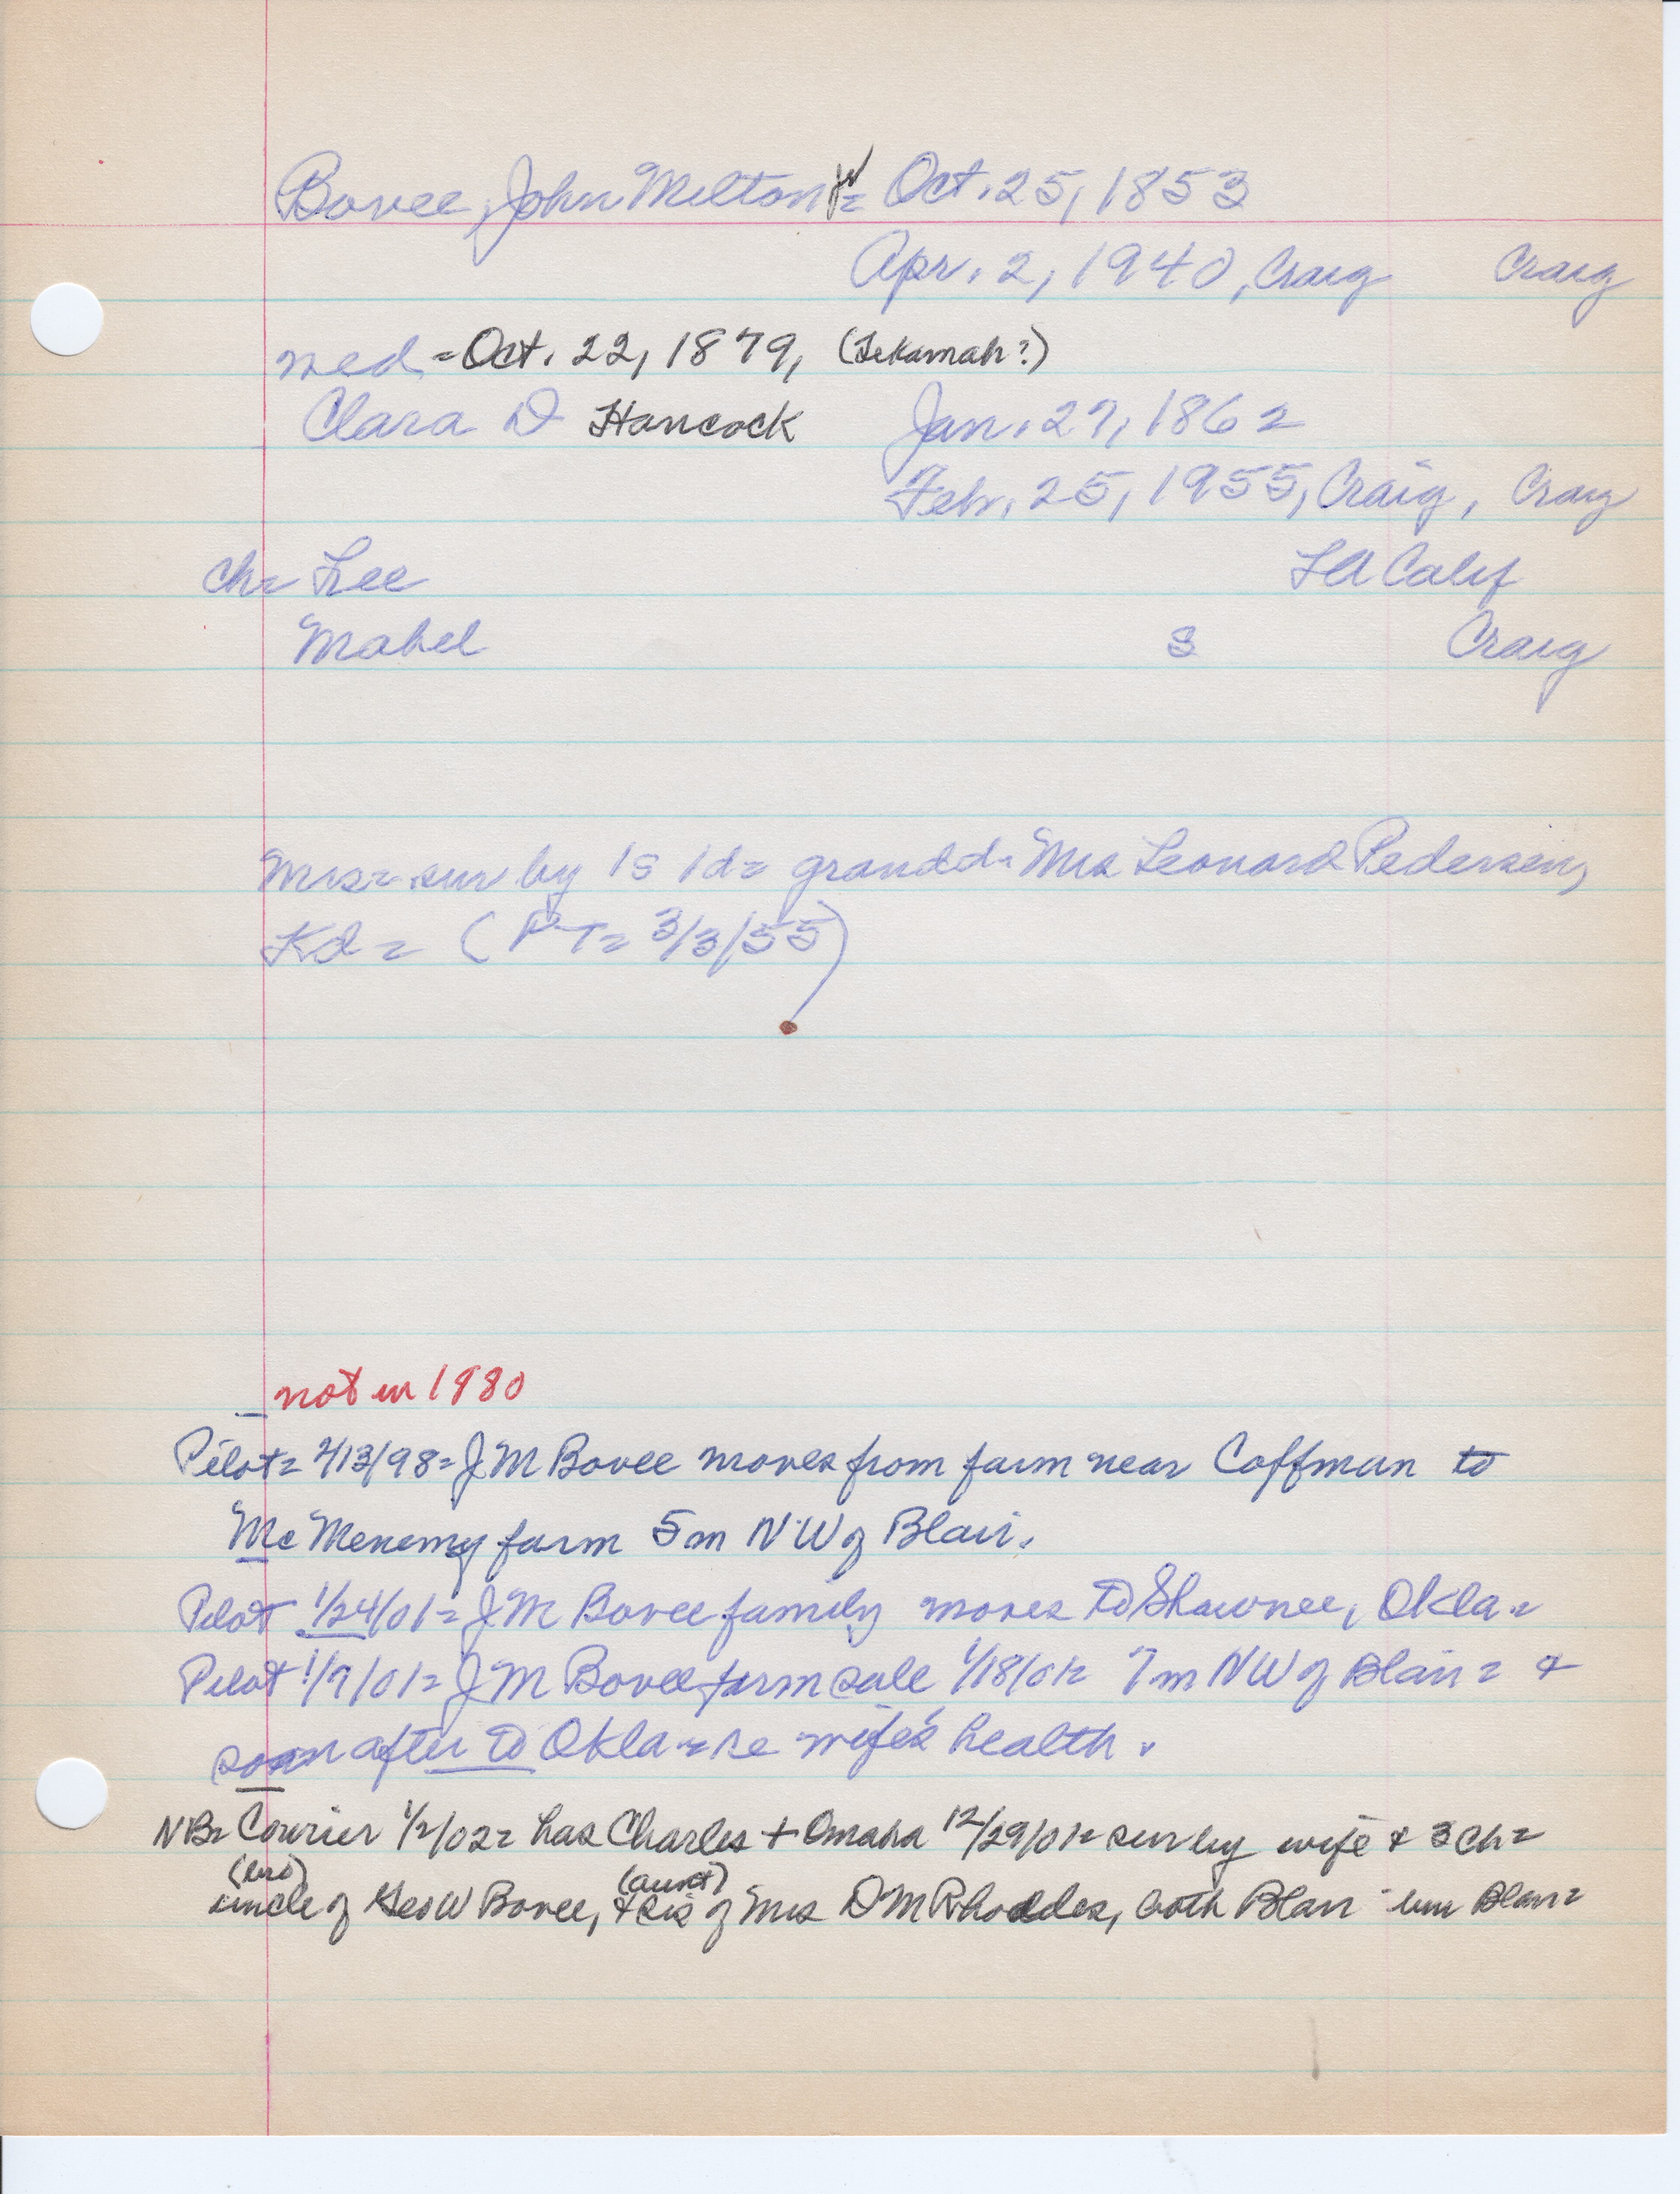 Bovee, John Milton = Oct. 25, 1853
Apr. 2, 1940, Craig Craig
med = Oct. 22, 1879, (Tekamah?)
Clara D Hancock Jan. 27, 1862
Feb. 25, 1955, Craig, Craig
ch= Lee LA Calif
Mabel S Craig
Mrs= sur by 1s 1d= grandd= Mrs Leonard Pedersen,
Kd = (PT= 3/3/55)
not in 1980
Pilot= 2/13/98= J M Bovee moves from farm near Coffman to
McMenemy farm 5m NW of Blair.
Pilot 1/24/01= J M Bovee family moves to Shawnee, Okla=
Pilot 1/9/01= J M Bovee farm sale 1/18/01= 7m NW of Blair= &
soon after to Okla= re wife's health.
NB= Courier 1/2/02= has Charles + Omaha 12/29/01= sur by wife & 3 ch=
(bro) (aunt)
uncle of Geo W Bovee, & sis of Mrs D M Rhoades, both Blair bur Blair=